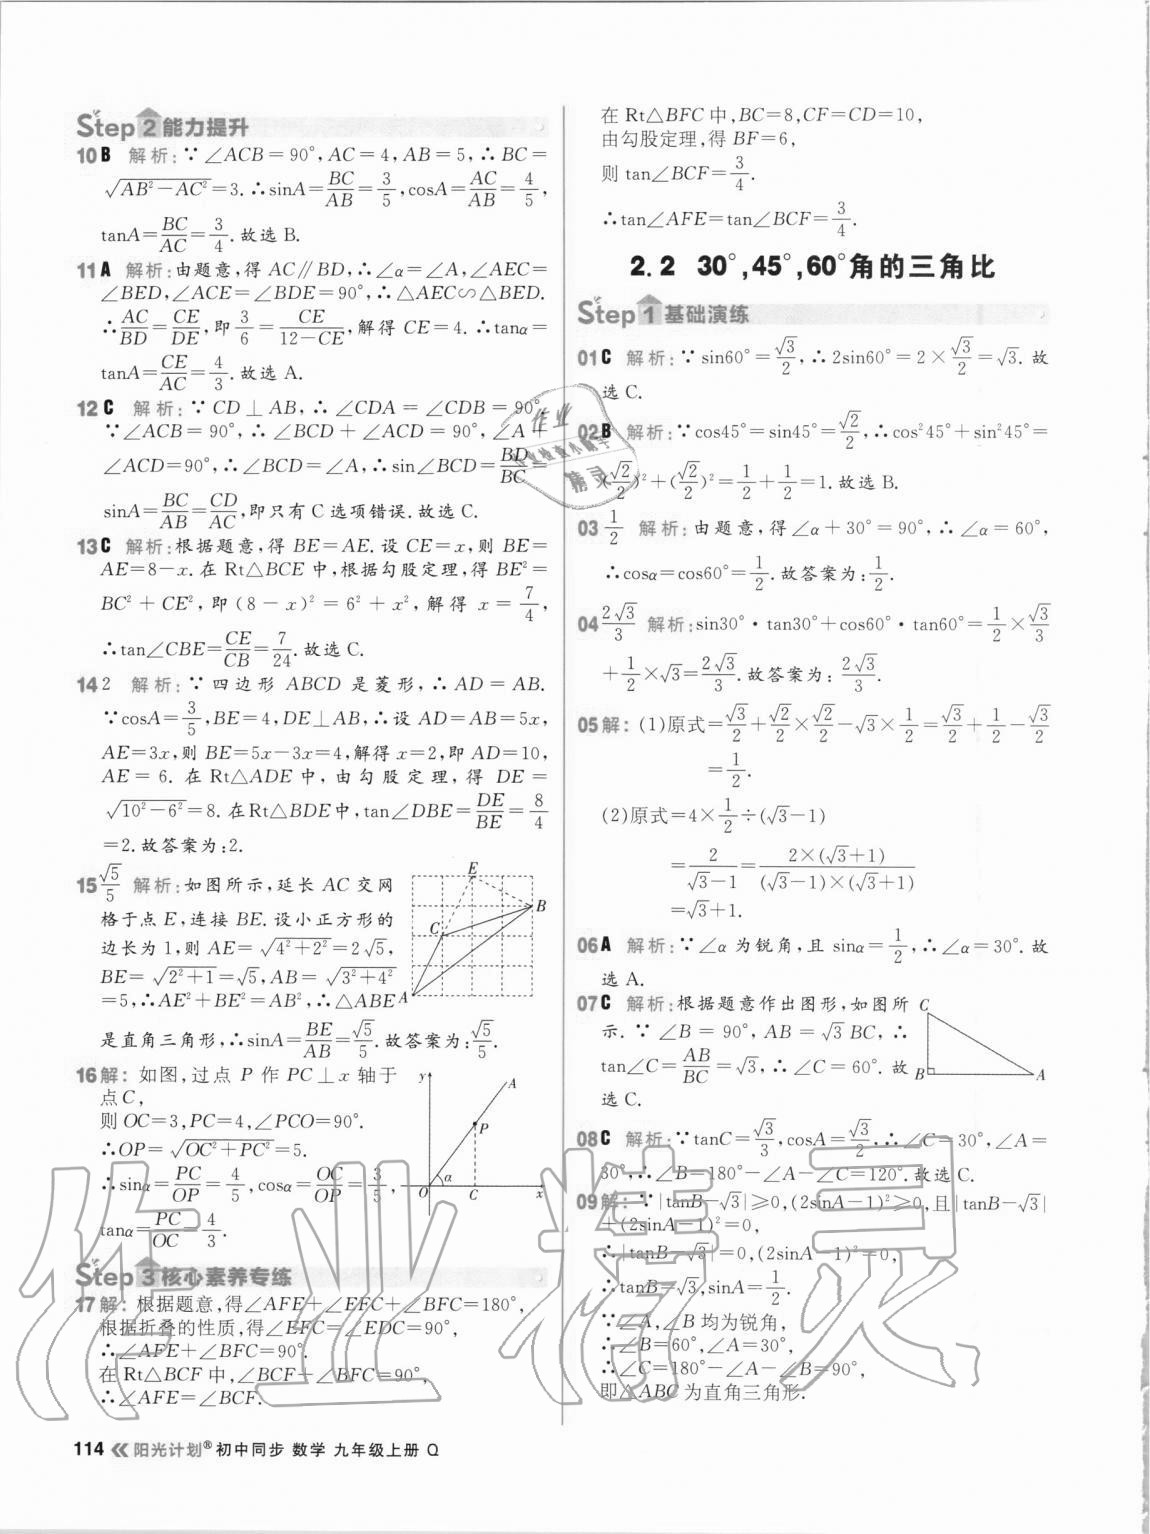 Step 2 能力提升
10 B 解析:∵∠ACB=90°,AC=4,AB=5,∴BC=
√(AB²-AC²)=3.∴sinA=BC/AB=3/5,cosA=AC/AB=4/5,
tanA=BC/AC=3/4.故选 B.
11 A 解析:由题意,得 AC∥BD,∴∠α=∠A,∠AEC=
∠BED,∠ACE=∠BDE=90°,∴△AEC∽△BED.
∴AC/BD=CE/DE,即 3/6=CE/(12-CE),解得 CE=4.∴tanα=
tanA=CE/AC=4/3.故选 A.
12 C 解析:∵CD⊥AB,∴∠CDA=∠CDB=90°.
∵∠ACB=90°,∴∠BCD+∠ACD=90°,∠A+
∠ACD=90°,∴∠BCD=∠A,∴sin∠BCD=BD/BC=
sinA=BC/AB=CD/AC,即只有 C 选项错误.故选 C.
13 C 解析:根据题意,得 BE=AE.设 CE=x,则 BE=
AE=8-x.在 Rt△BCE 中,根据勾股定理,得 BE²=
BC²+CE²,即(8-x)²=6²+x²,解得 x=7/4,
∴tan∠CBE=CE/CB=7/24.故选 C.
14 2 解析:∵四边形 ABCD 是菱形,∴AD=AB.
∵cosA=3/5,BE=4,DE⊥AB,∴设 AD=AB=5x,
AE=3x,则 BE=5x-3x=4,解得 x=2,即 AD=10,
AE=6.在 Rt△ADE 中,由勾股定理,得 DE=
√(10²-6²)=8.在 Rt△BDE 中,tan∠DBE=DE/BE=8/4
=2.故答案为:2.
15 √5/5 解析:如图所示,延长 AC 交网
格于点 E,连接 BE.设小正方形的
边长为 1,则 AE=√(4²+2²)=2√5,
BE=√(2²+1)=√5,AB=√(3²+4²)
=5,∴AE²+BE²=AB²,∴△ABE
是直角三角形,∴sinA=BE/AB=√5/5.故答案为:√5/5.
E
B
C
A
16 解:如图,过点 P 作 PC⊥x 轴于
点 C,
则 OC=3,PC=4,∠PCO=90°.
∴OP=√(OC²+PC²)=5.
∴sinα=PC/OP=4/5,cosα=OC/OP=3/5,
tanα=PC/OC=4/3.
y
A
P
α
O
C
x
Step 3 核心素养专练
17 解:根据题意,得∠AFE+∠EFC+∠BFC=180°,
根据折叠的性质,得∠EFC=∠EDC=90°,
∴∠AFE+∠BFC=90°.
在 Rt△BCF 中,∠BCF+∠BFC=90°,
∴∠AFE=∠BCF.
在 Rt△BFC 中,BC=8,CF=CD=10,
由勾股定理,得 BF=6,
则 tan∠BCF=3/4.
∴tan∠AFE=tan∠BCF=3/4.
2.2 30°,45°,60°角的三角比
Step 1 基础演练
01 C 解析:∵sin60°=√3/2,∴2sin60°=2×√3/2=√3.故
选 C.
02 B 解析:∵cos45°=sin45°=√2/2,∴cos²45°+sin²45°=
(√2/2)²+(√2/2)²=1/2+1/2=1.故选 B.
03 1/2 解析:由题意,得∠α+30°=90°,∴∠α=60°,
∴cosα=cos60°=1/2.故答案为:1/2.
04 2√3/3 解析:sin30°·tan30°+cos60°·tan60°=1/2×√3/3
+1/2×√3=2√3/3.故答案为:2√3/3.
05 解:(1)原式=√3/2+√2/2×√2/2-√3×1/2=√3/2+1/2-√3/2
=1/2.
(2)原式=4×1/2÷(√3-1)
=2/(√3-1)=2×(√3+1)/((√3-1)×(√3+1))
=√3+1.
06 A 解析:∵∠α 为锐角,且 sinα=1/2,∴∠α=30°.故
选 A.
07 C 解析:根据题意作出图形,如图所
示.∵∠B=90°,AB=√3BC,∴
tan∠C=AB/BC=√3,∴∠C=60°.故
选 C.
C
B
A
08 C 解析:∵tanC=√3/3,cosA=√3/2,∴∠C=30°,∠A=
30°,∴∠B=180°-∠A-∠C=120°.故选 C.
09 解:∵|tanB-√3|≥0,(2sinA-1)²≥0,且|tanB-√3|
+(2sinA-1)²=0,
∴|tanB-√3|=0,(2sinA-1)²=0,
∴tanB=√3,sinA=1/2.
∵∠A,∠B 均为锐角,
∴∠B=60°,∠A=30°,
∴∠C=180°-∠A-∠B=90°,
即△ABC 为直角三角形.
114 阳光计划® 初中同步 数学 九年级上册 Q
作业精灵
作业
精灵